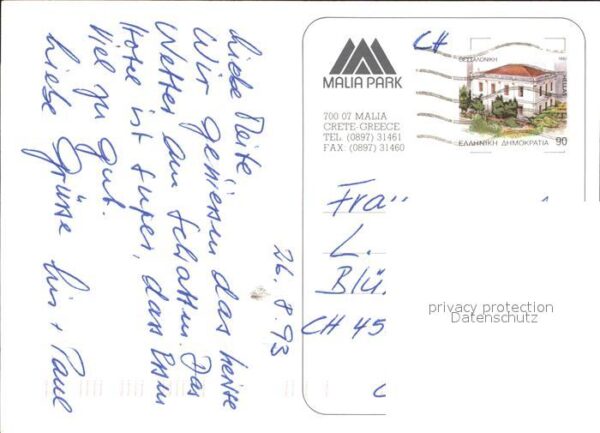 26.8.93
Liebe
Wir geniessen das heisse
Wetter am Schatten. Das
Hotel ist super, das Essen
viel zu gut.
Liebe Grüsse Lis + Paul
MALIA PARK
700 07 MALIA
CRETE-GREECE
TEL. (0897) 31461
FAX. (0897) 31460
CH
ΘΕΣΣΑΛΟΝΙΚΗ
ΕΛΛΗΝΙΚΗ ΔΗΜΟΚΡΑΤΙΑ 90
L.
CH 45
privacy protection
Datenschutz